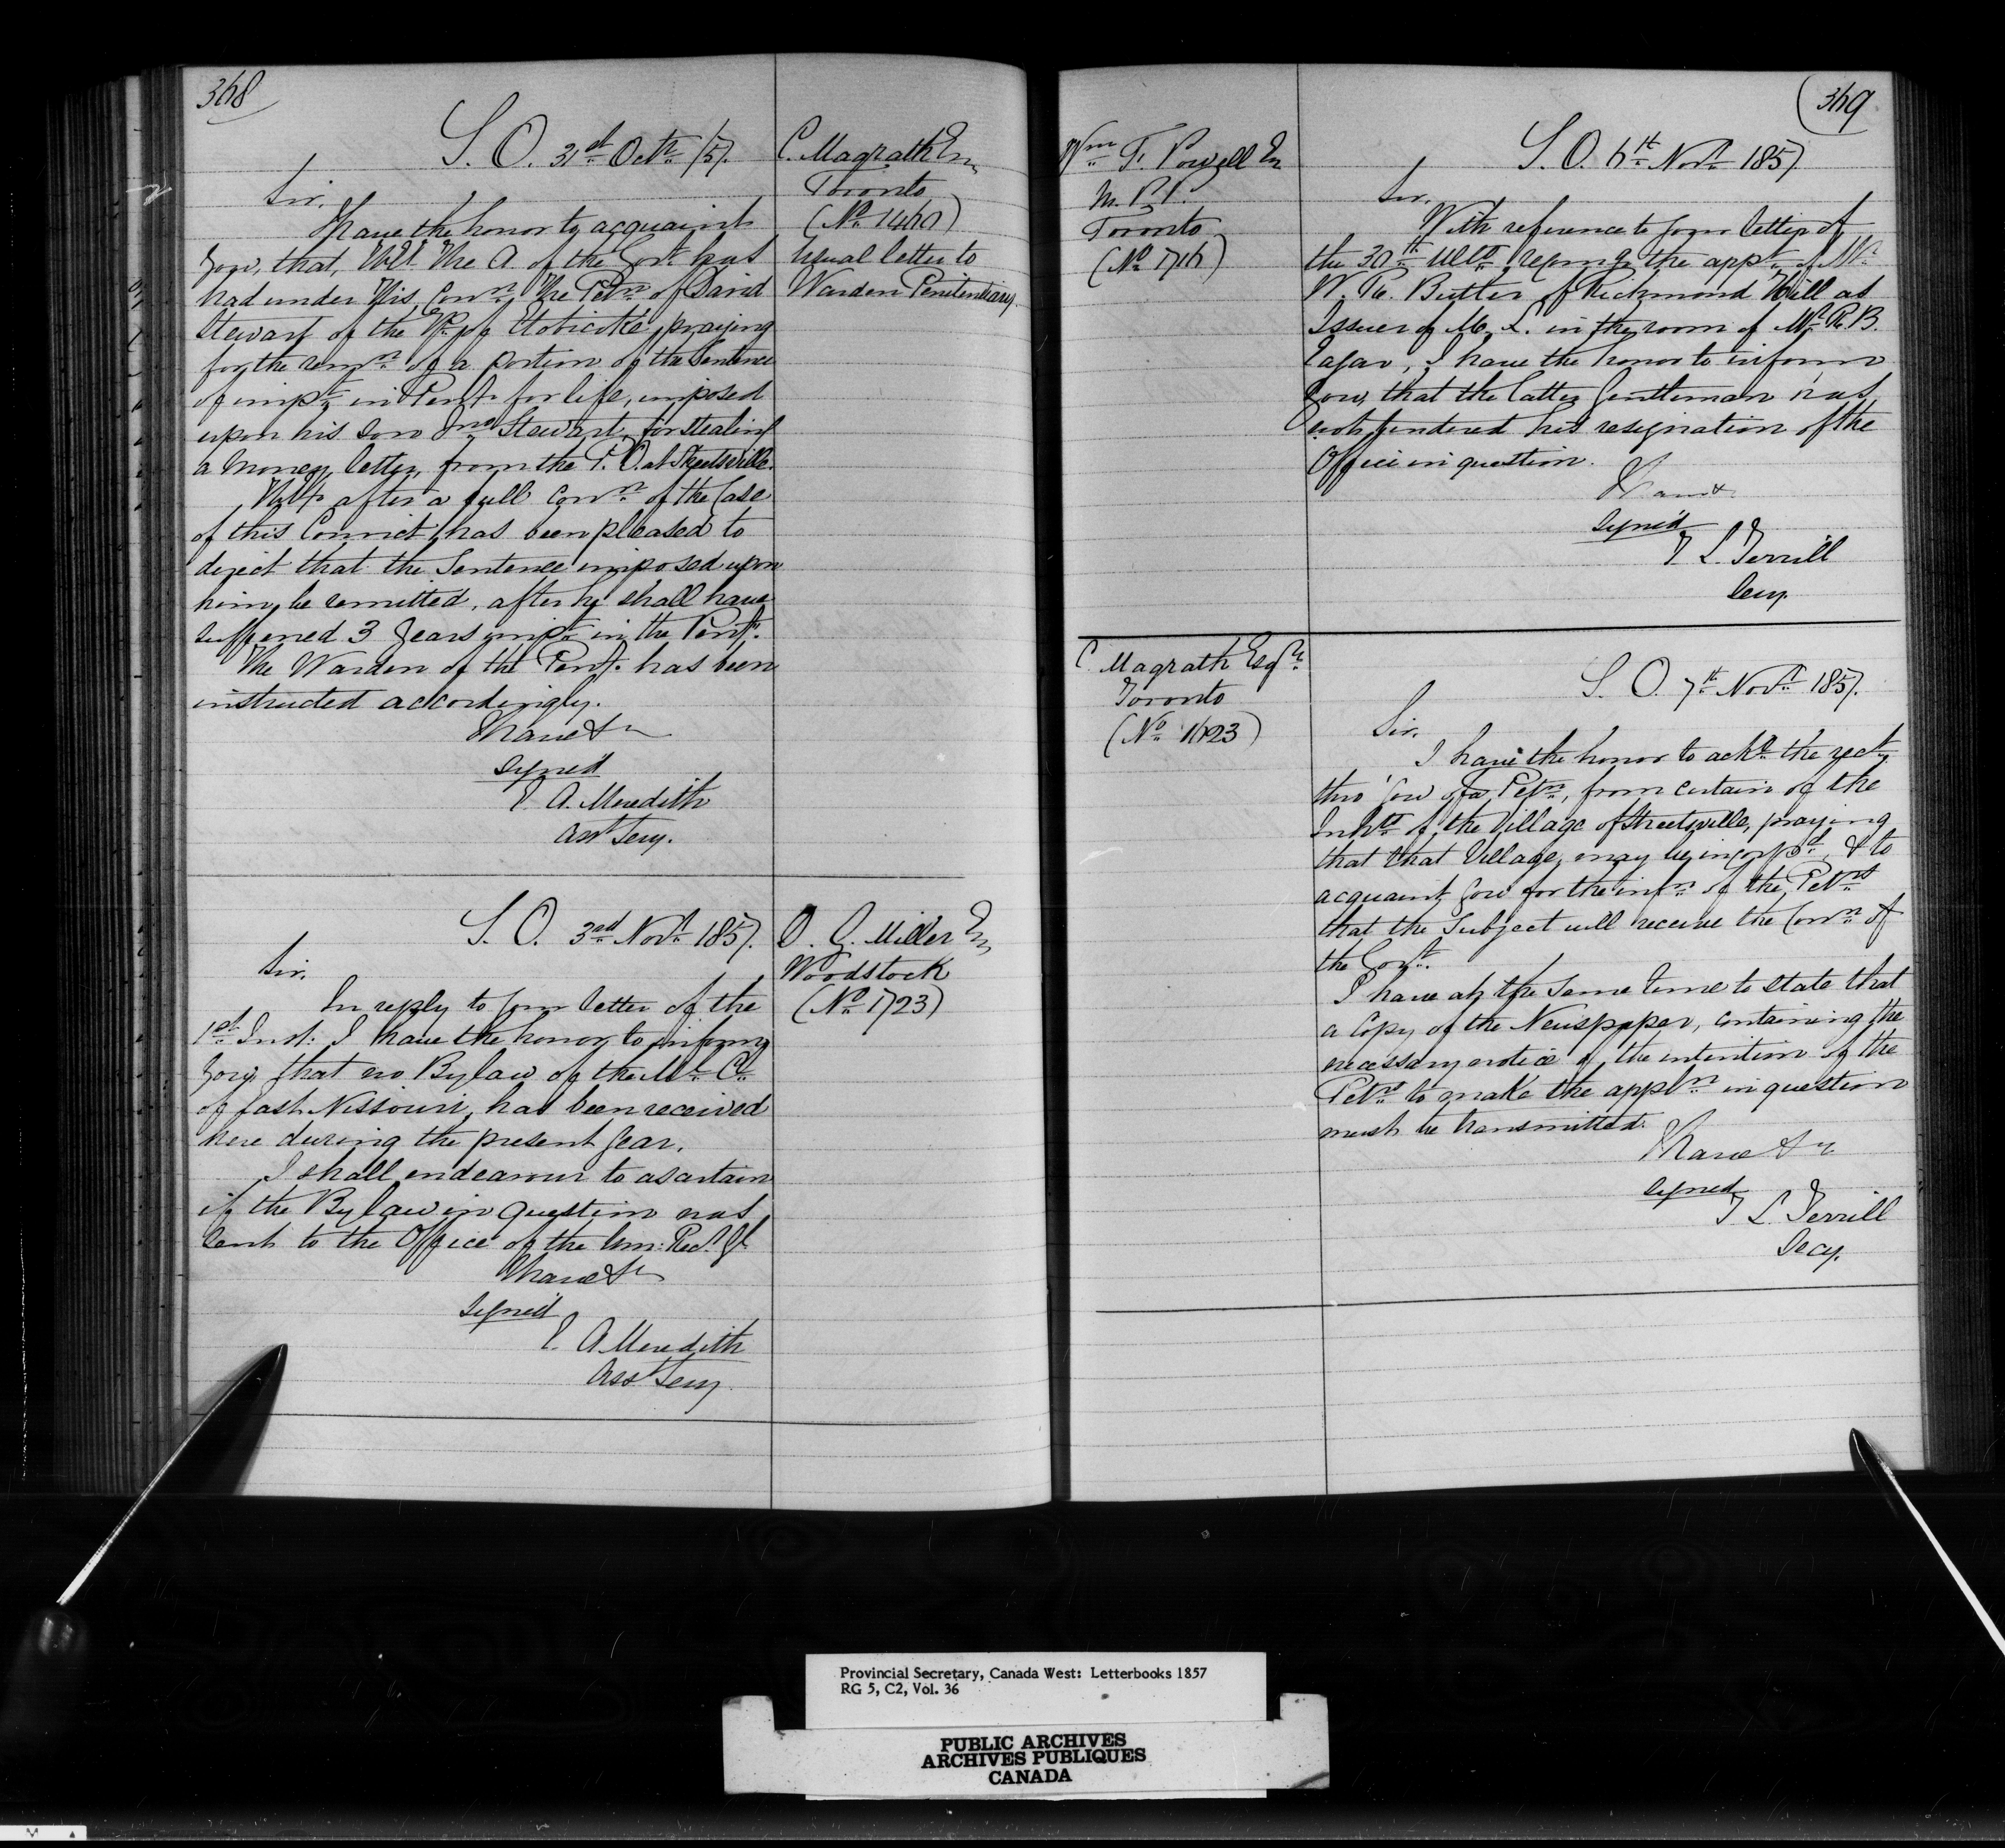 368
S. O. 31st Octr /57.
C. Magrath Esq
Toronto
(No 1460)
Usual letter to
Warden Penitentiary.
Sir,
I have the honor to acquaint
you, that, The A. of the Govt has
had under His Conn, The Petn of David
Stewart of the Tp. of Etobicoke, praying
for the remn of a portion of the Sentence
of impt in Penty for life, imposed
upon his son Jno Stewart, for stealing
a money letter, from the P. O. at Streetsville.
after a full conn of the Case
of this Convict, has been pleased to
direct that the Sentence imposed upon
him, be remitted, after he shall have
suffered 3 years impt in the Penty.
The Warden of the Penty. has been
instructed accordingly.
I have &c
signed
E. A. Meredith
Asst Secy.
S. O. 3rd Novr 1857.
O. G. Miller Esq
Woodstock
(No 1723)
Sir,
In reply to your letter of the
1st Inst: I have the honor to inform
you that no Bylaw of the Ml Cl
of East Nissouri, has been received
here during the present year.
I shall endeavour to ascertain
if the Bylaw in question was
sent to the Office of the Recr Gl
I have &c
signed
E. A. Meredith
Asst Secy
369
Wm F. Powell Esq
M. P. P.
Toronto
(No 1716)
S. O. 6th Novr 1857.
Sir,
With reference to your letter of
the 30th Ulto, the appt of Mr
W. R. Butler of Richmond Hill as
Issuer of M. L. in the room of Mr R. B.
I have the honor to inform
you, that the latter Gentleman has
not tendered his resignation of the
Office in question.
I have &c
signed
T L. Terrill
Secy.
C. Magrath Esqr
Toronto
(No 1623)
S. O. 7th Novr 1857.
Sir,
I have the honor to ackn the rect,
thro' you of a Petn, from certain of the
Inhts of the Village of Streetsville, praying
that that Village, may be incorptd, & to
acquaint you for the infn of the, Petrs
that the Subject will receive the Conn of
the Govt.
I have at the same time to state that
a Copy of the Newspaper, containing the
necessary notice of the intention of the
Petrs to make the appln in question
must be transmitted.
I have &c
signed
T L. Terrill
Secy.
Provincial Secretary, Canada West: Letterbooks 1857
RG 5, C2, Vol. 36
PUBLIC ARCHIVES
ARCHIVES PUBLIQUES
CANADA